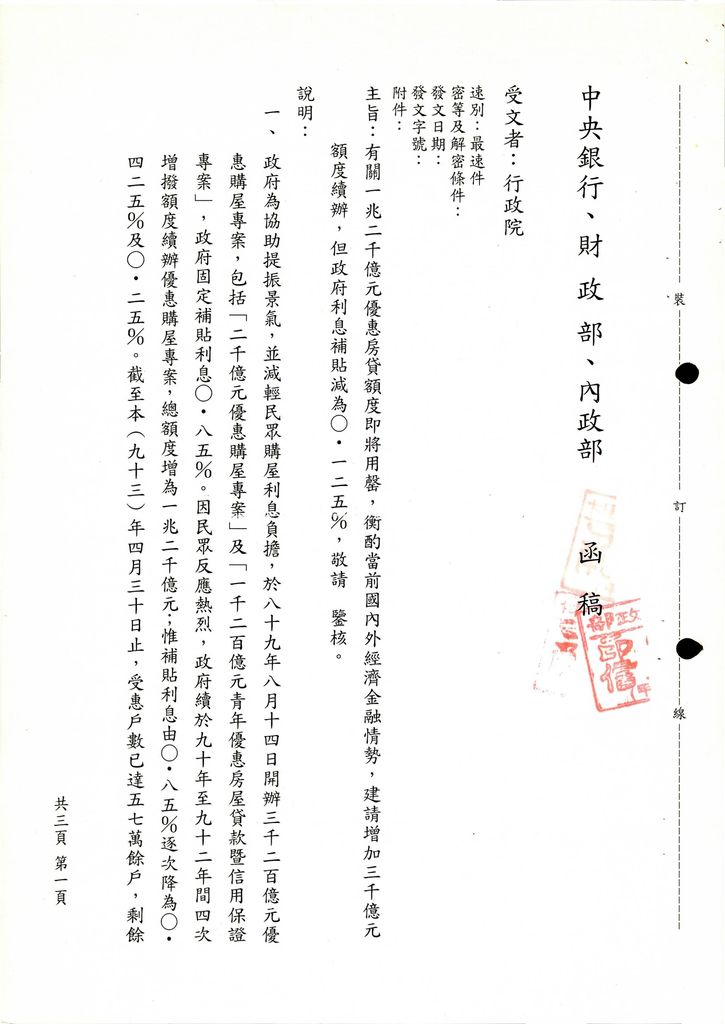 中央銀行、財政部、內政部　函稿
受文者：行政院
速別：最速件
密等及解密條件：
發文日期：
發文字號：
附件：
主旨：有關一兆二千億元優惠房貸額度即將用罄，衡酌當前國內外經濟金融情勢，建請增加三千億元
額度續辦，但政府利息補貼減為○．一二五％，敬請　鑒核。
說明：
一、政府為協助提振景氣，並減輕民眾購屋利息負擔，於八十九年八月十四日開辦三千二百億元優
惠購屋專案，包括「二千億元優惠購屋專案」及「一千二百億元青年優惠房屋貸款暨信用保證
專案」，政府固定補貼利息○．八五％。因民眾反應熱烈，政府續於九十年至九十二年間四次
增撥額度續辦優惠購屋專案，總額度增為一兆二千億元；惟補貼利息由○．八五％逐次降為○．
四二五％及○．二五％。截至本（九十三）年四月三十日止，受惠戶數已達五七萬餘戶，剩餘
共三頁 第一頁
裝
訂
線
政部
印信